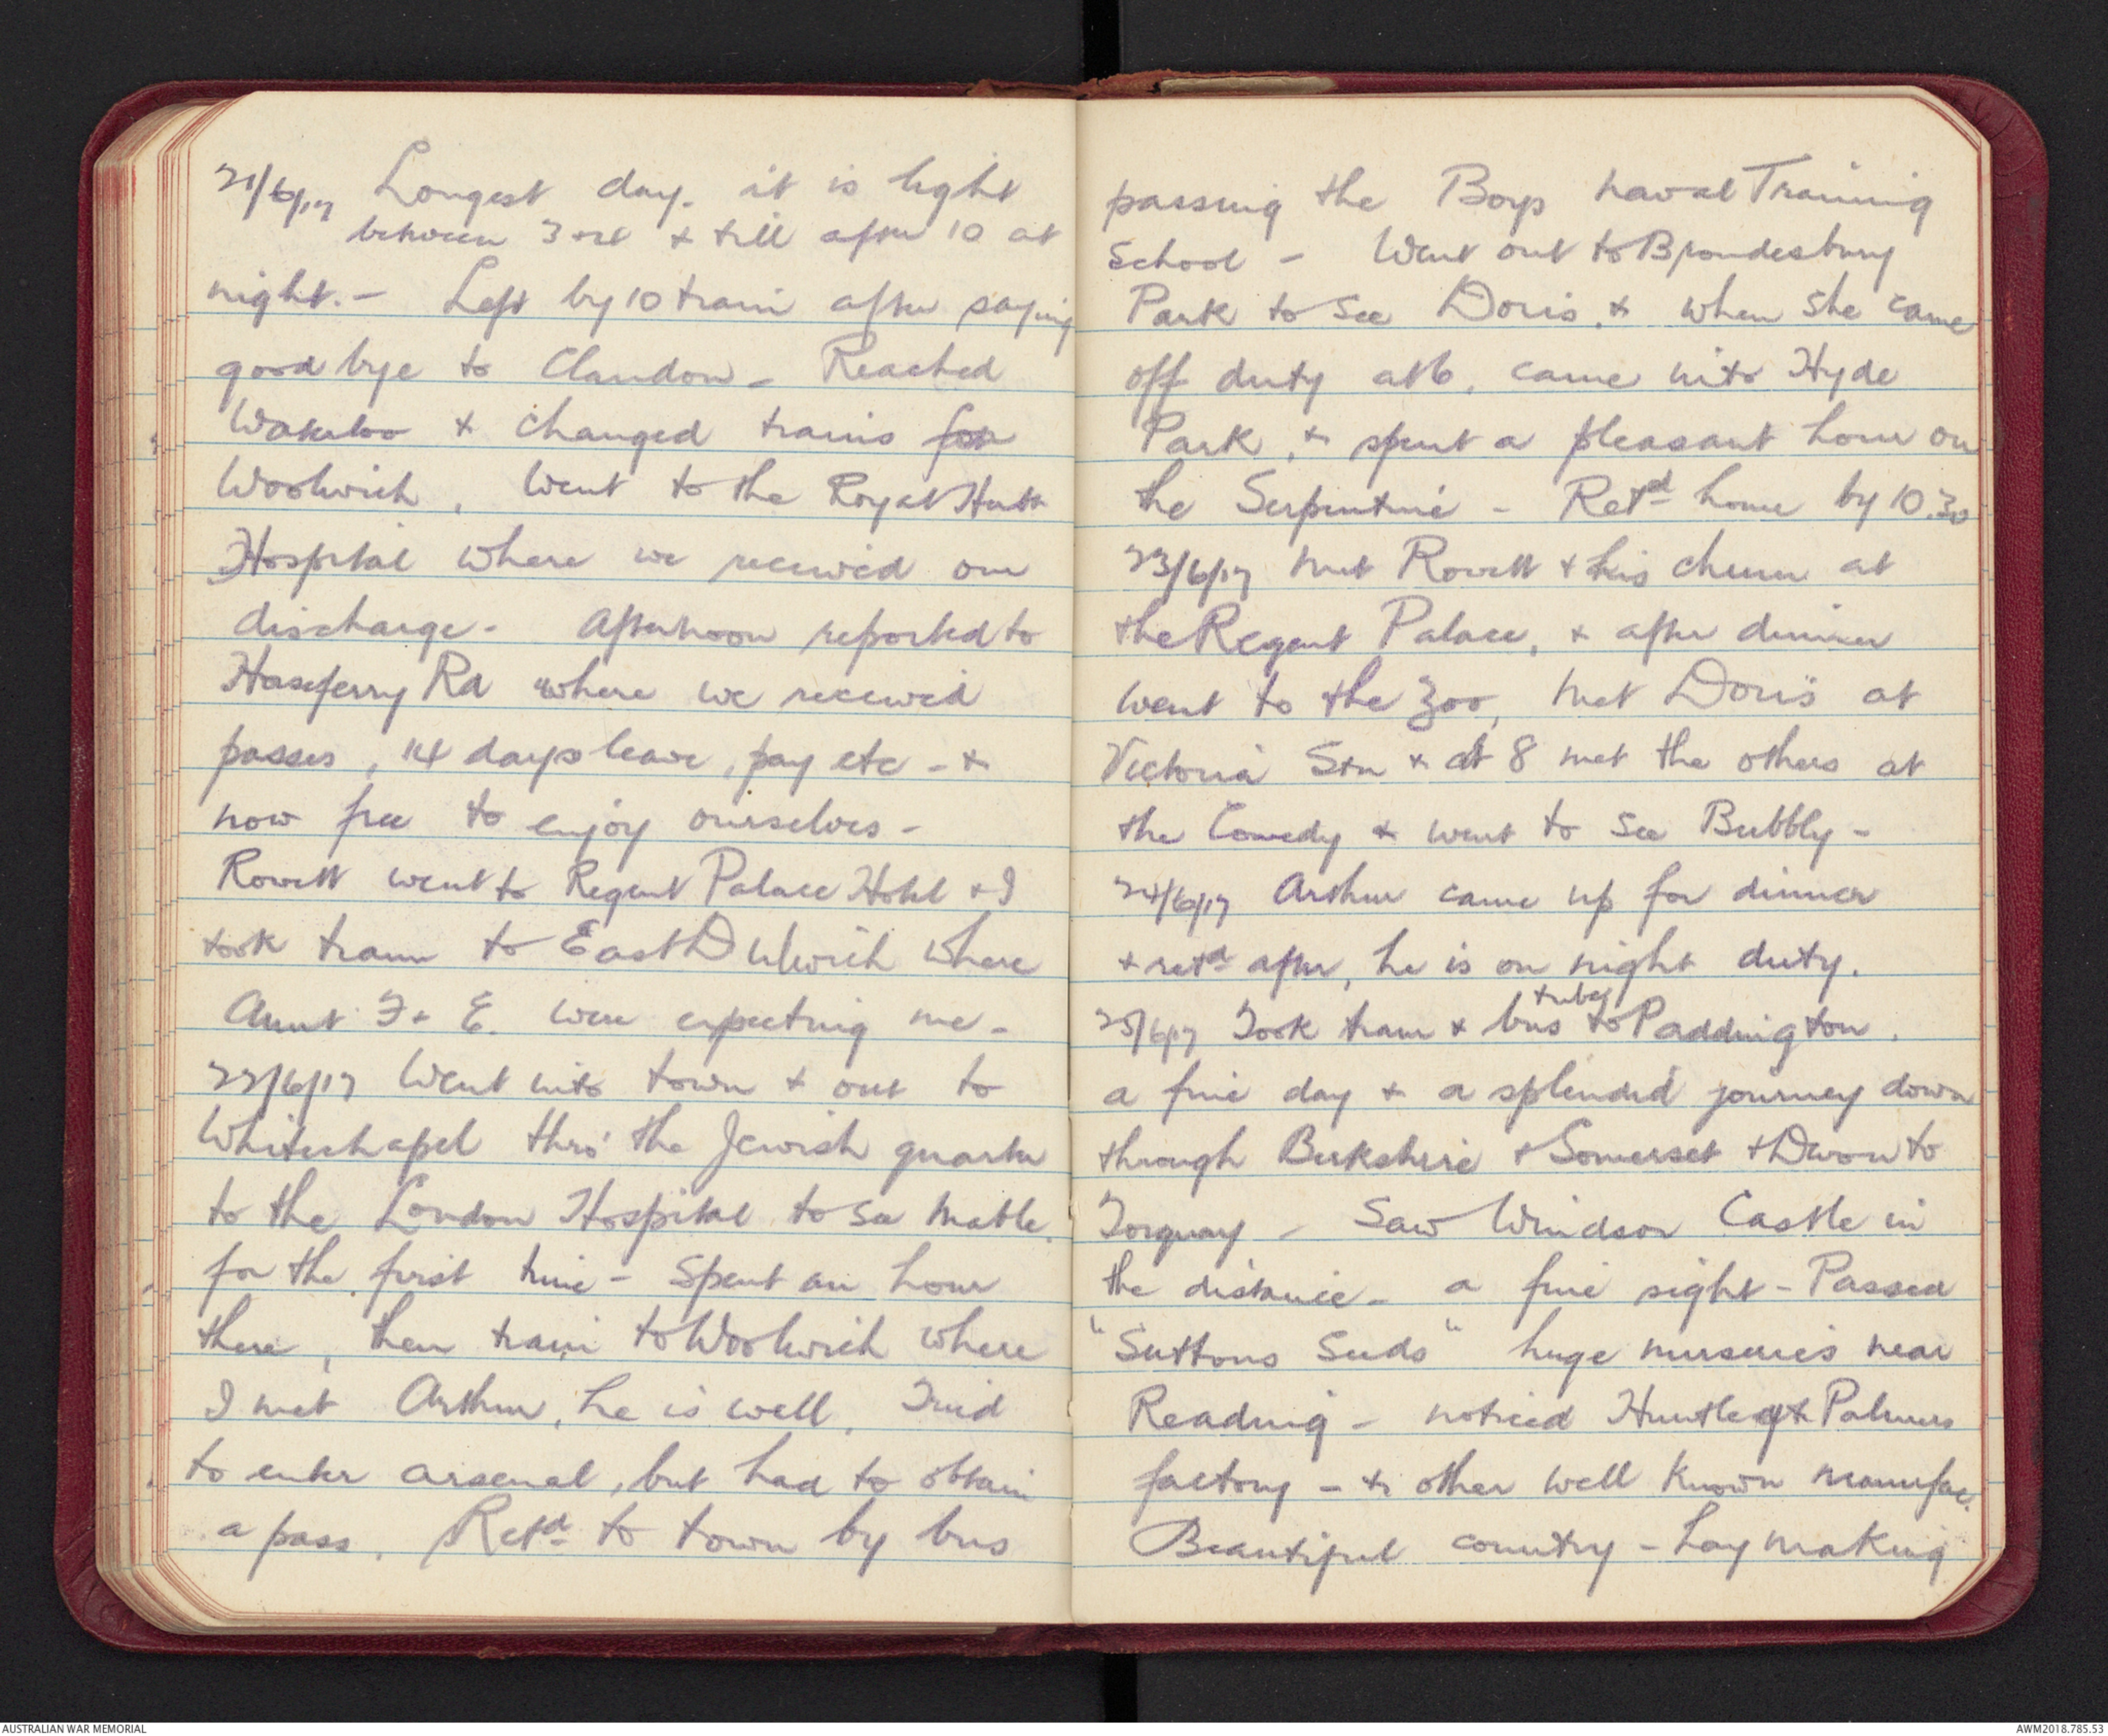 21/6/17 Longest day. it is light
between 3 & 4 & till after 10 at
night. - Left by 10 train after saying
good bye to Clandon - Reached
Waterloo & changed trains for
Woolwich, Went to the Royal
Hospital where we received our
discharge - Afternoon reported to
Horseferry Rd where we received
passes, 14 days leave, pay etc - &
now free to enjoy ourselves -
Rowett went to Regent Palace Hotel & I
took tram to East Dulwich where
Aunt F & E. were expecting me -
22/6/17 Went into town & out to
Whitechapel thro' the Jewish quarter
to the London Hospital to see Mable.
for the first time - Spent an hour
there, then train to Woolwich where
I met Arthur, he is well. Tried
to enter arsenal, but had to obtain
a pass. Retd to town by bus
passing the Boys Naval Training
School - Went out to Brondesbury
Park to see Doris, & when she came
off duty at 6, came into Hyde
Park, & spent a pleasant hour on
the Serpentine - Retd home by 10.30
23/6/17 Met Rowett & his chum at
the Regent Palace, & after dinner
went to the Zoo, Met Doris at
Victoria Stn & at 8 met the others at
the Comedy & went to see Bubbly -
24/6/17 Arthur came up for dinner
& retd after, he is on night duty.
tube
25/6/17 Took tram & bus to Paddington.
a fine day & a splendid journey down
through Berkshire & Somerset & Devon to
Torquay - Saw Windsor Castle in
the distance - a fine sight - Passed
"Suttons Seeds" huge nurseries near
Reading - noticed Huntley & Palmers
factory - & other well known manufac.
Beautiful country - Hay making
AUSTRALIAN WAR MEMORIAL
AWM2018.785.53